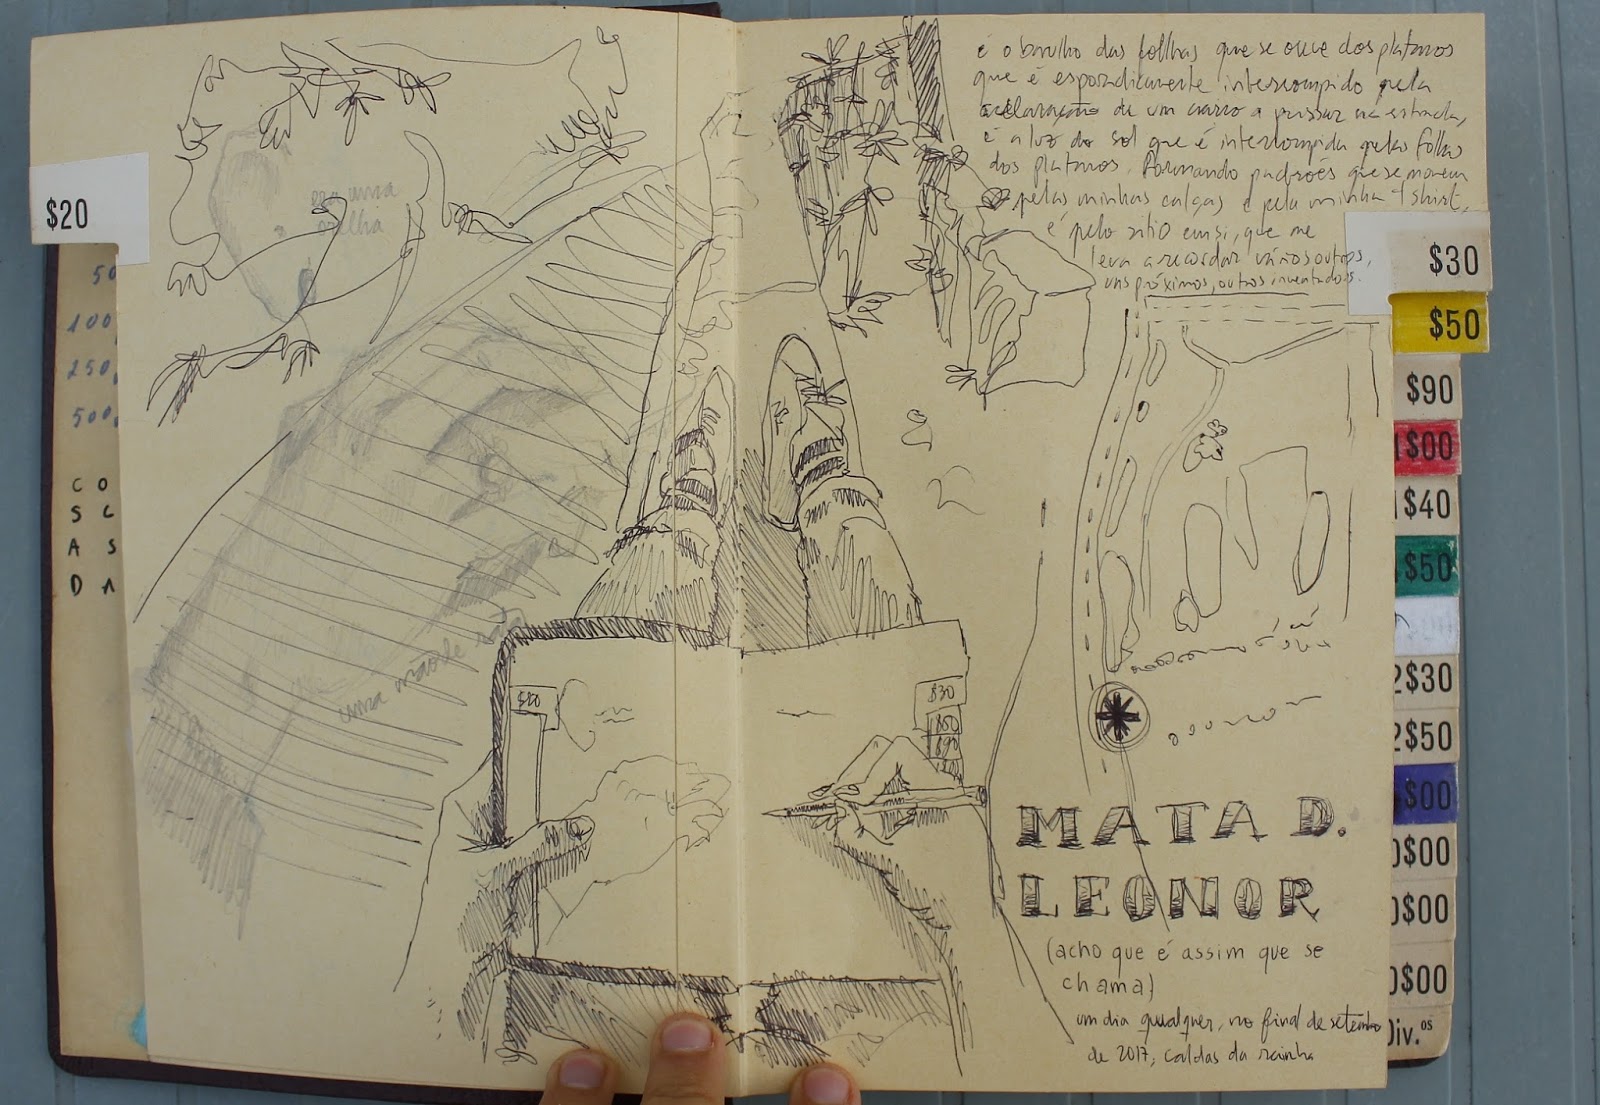 $20
50
100
250
500
C O
S C
A S
D A
era uma
orelha
uma mão de
é o barulho das folhas que se ouve dos platanos
que é esporadicamente interrompido pela
aclaração de um carro a passar na estrada,
é a luz do sol que é interrompida pelas folhas
dos platanos, formando padrões que se movem
pelas minhas calças e pela minha t shirt,
é pelo sitio em si, que me
leva a recordar vários outros,
uns próximos, outros inventados.
$30
$50
$90
1$00
1$40
$50
2$30
2$50
$00
0$00
0$00
0$00
Div.os
$20
$30
$50
$90
MATA D.
LEONOR
(acho que é assim que se
chama)
um dia qualquer, no final de setembro
de 2017, caldas da rainha